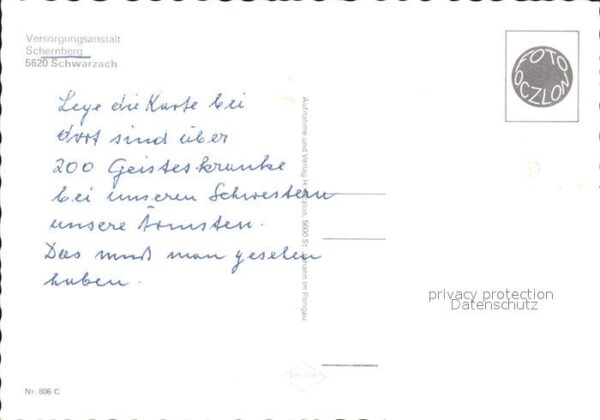 Versorgungsanstalt
Schernberg
5620 Schwarzach
FOTO
OCZLON
Lege die Karte bei
dort sind über
200 Geisteskranke
bei unseren Schwestern
unsere Ärmsten.
Das muß man gesehen
haben.
Aufnahme und Verlag H. Oczlon, 5600 St. Johann im Pongau
privacy protection
Datenschutz
Nr. 806 C